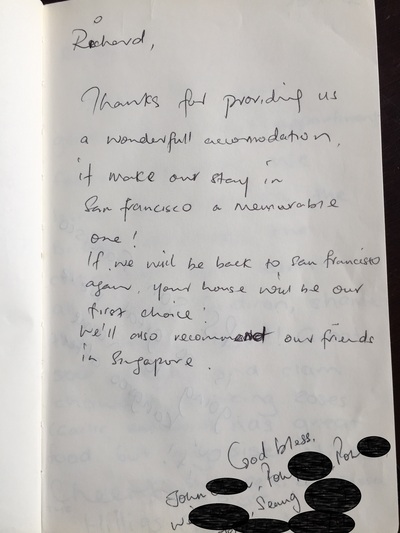 Richard,
Thanks for providing us
a wonderfull accomodation,
it make our stay in
San francisco a memorable
one!
If we will be back to San francisco
again, your house will be our
first choice!
We'll also recommend our friends
in Singapore.
God bless.
John